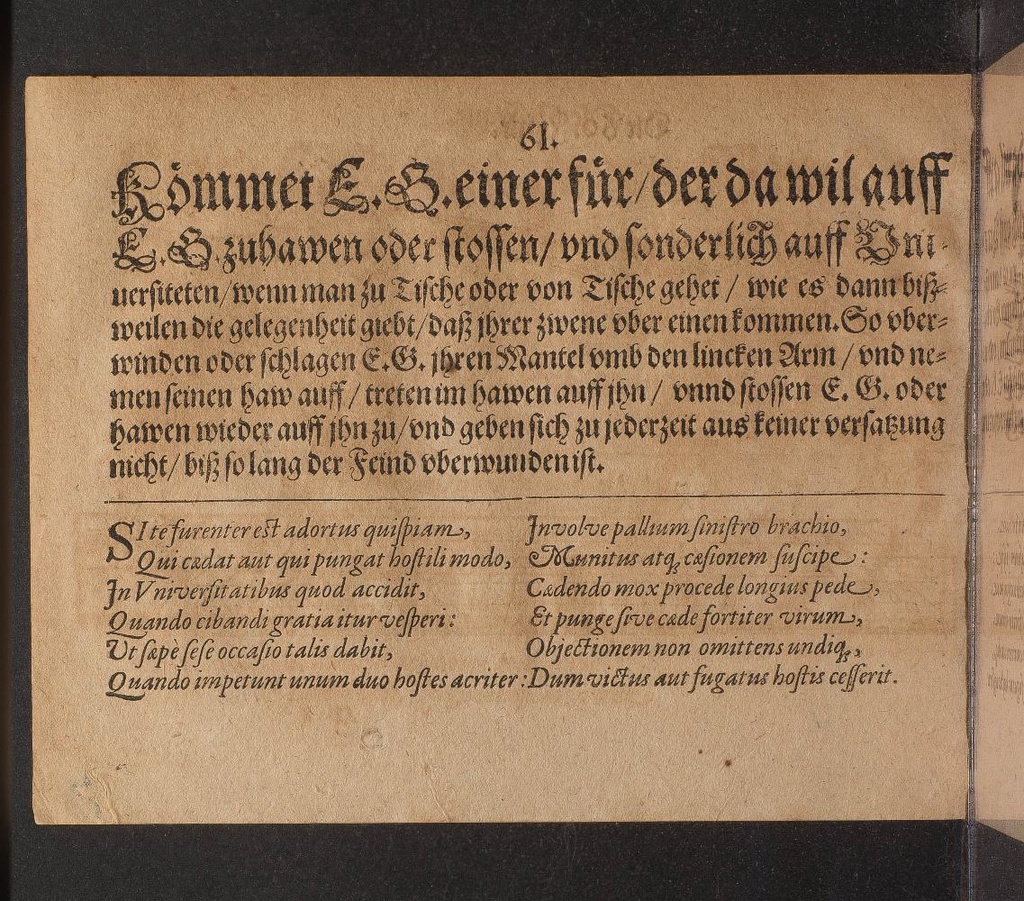 61.
Kömmet E. G. einer für/ der da wil auff
E. G. zuhawen oder stossen/ vnd sonderlich auff Vni-
uersiteten/ wenn man zu Tische oder von Tische gehet / wie es dann biß-
weilen die gelegenheit giebt/ daß jhrer zwene vber einen kommen. So vber-
winden oder schlagen E. G. jhren Mantel vmb den lincken Arm / vnd ne-
men seinen haw auff / treten im hawen auff jhn / vnnd stossen E. G. oder
hawen wieder auff jhn zu/ vnd geben sich zu jederzeit aus keiner versatzung
nicht/ biß so lang der Feind vberwunden ist.
SI te furenter est adortus quispiam,
Qui cædat aut qui pungat hostili modo,
In Vniversitatibus quod accidit,
Quando cibandi gratia itur vesperi:
Ut sæpè sese occasio talis dabit,
Quando impetunt unum duo hostes acriter:
Involve pallium sinistro brachio,
Munitus atq; cæsionem suscipe:
Cædendo mox procede longius pede,
Et punge sive cæde fortiter virum,
Objectionem non omittens undiq;,
Dum victus aut fugatus hostis cesserit.